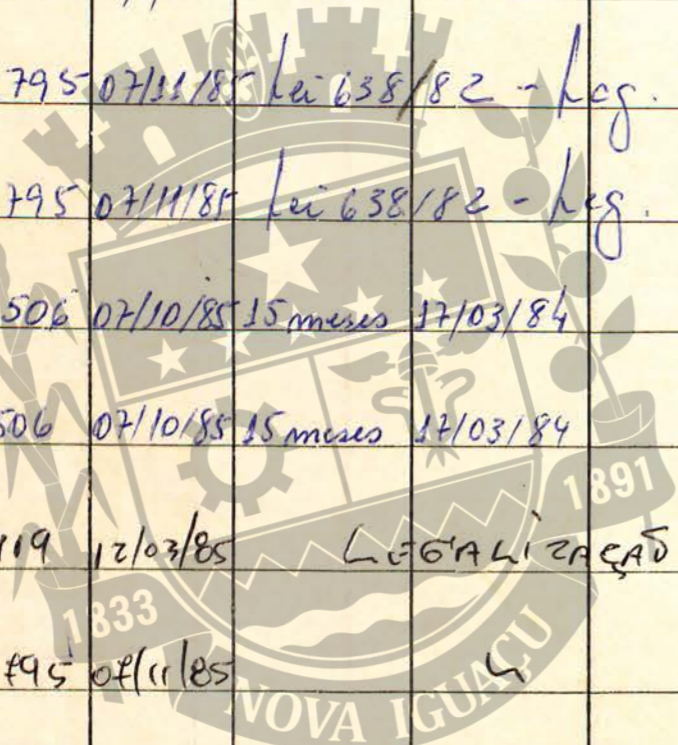 795 07/11/85 Lei 638/82 - Leg.
795 07/11/85 Lei 638/82 - Leg.
506 07/10/85 15 meses 17/03/84
506 07/10/85 15 meses 17/03/84
119 12/03/85 LEGALIZAÇAO
795 07/11/85 "
1891
1833
NOVA IGUAÇU